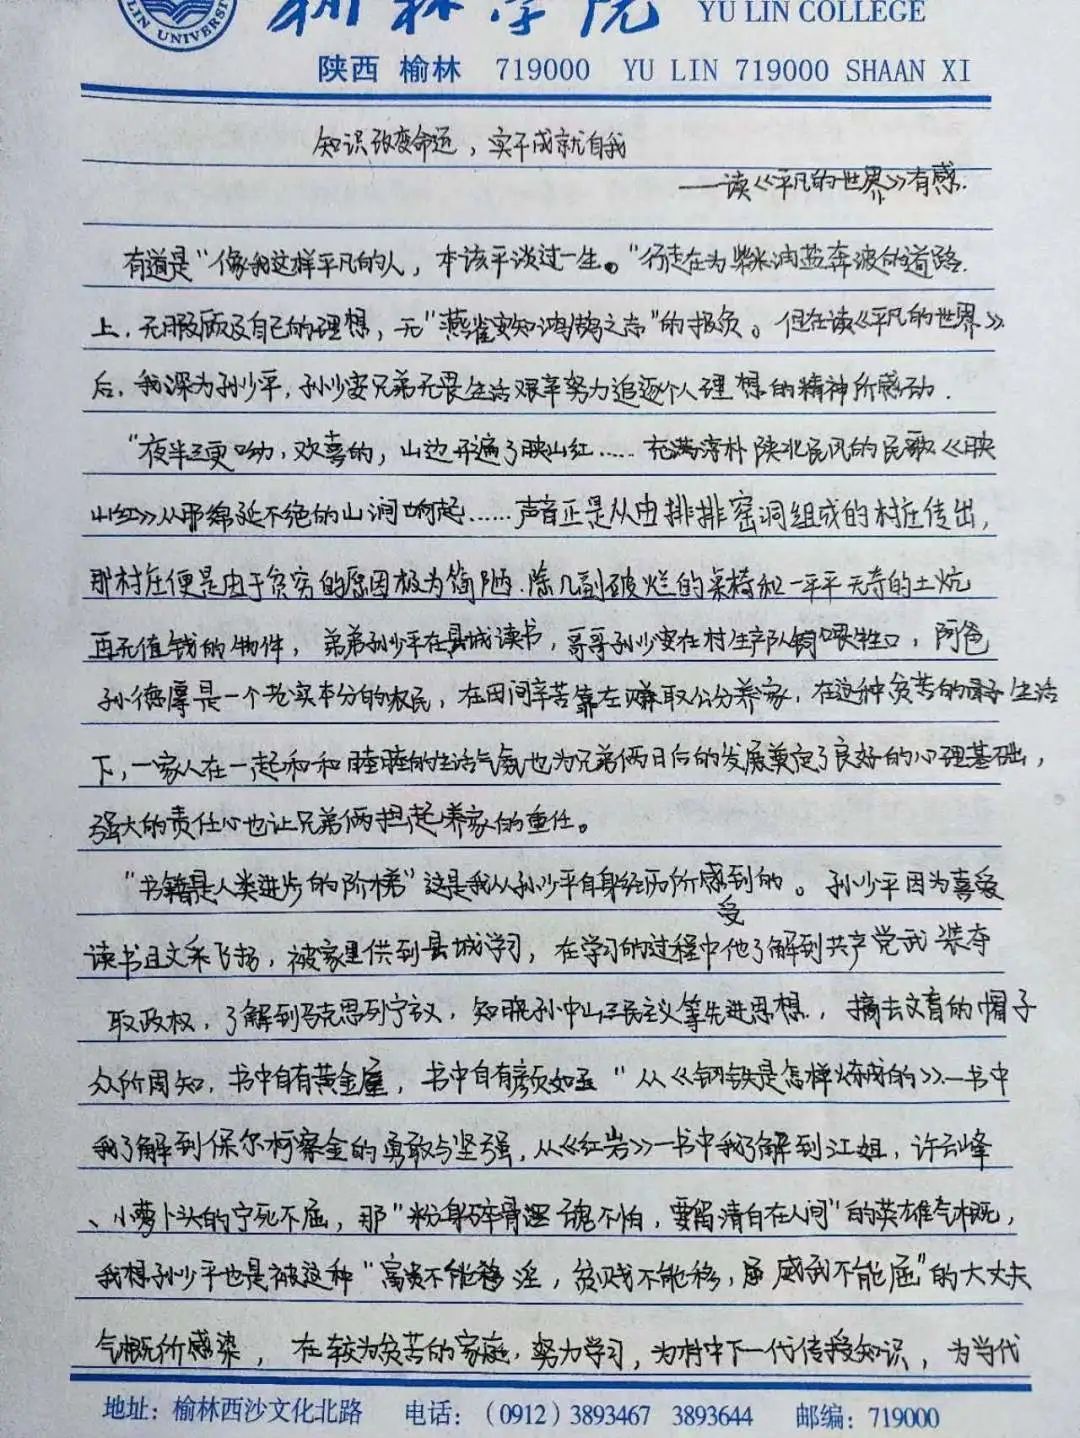 榆林学院 YU LIN COLLEGE
LIN UNIVERSITY
陕西 榆林 719000 YU LIN 719000 SHAAN XI
知识改变命运，实干成就自我
——读《平凡的世界》有感.
有道是“像我这样平凡的人，本该平谈过一生。”行走在为柴米油盐奔波的道路
上，无暇顾及自己的理想，无“燕雀安知鸿鹄之志”的报负。但在读《平凡的世界》
后，我深为孙少平，孙少安兄弟无畏生活艰辛努力追逐个人理想的精神所感动.
“夜半三更呦，欢喜的，山边开遍了映山红……充满淳朴陕北民风的民歌《映
山红》从那绵延不绝的山涧响起……声音正是从由排排窑洞组成的村庄传出，
那村庄便是由于贫穷的原因极为简陋.除几副破烂的桌椅和一平平无奇的土炕
再无值钱的物件，弟弟孙少平在县城读书，哥哥孙少安在村生产队饲喂牲口，阿爸
孙德厚是一个老实本分的农民，在田间辛苦靠在赚取公分养家，在这种贫苦的生活
下，一家人在一起和和睦睦的生活气氛也为兄弟俩日后的发展奠定了良好的心理基础，
强大的责任心也让兄弟俩担起养家的重任。
“书籍是人类进步的阶梯”这是我从孙少平自身经历所感受到的。孙少平因为喜爱
读书且文采飞扬，被家里供到县城学习，在学习的过程中他了解到共产党武装夺
取政权，了解到马克思列宁议，知晓孙中山三民主义等先进思想，摘去文盲的帽子
众所周知，书中自有黄金屋，书中自有颜如玉“从《钢铁是怎样炼成的》一书中
我了解到保尔柯察金的勇敢与坚强，从《红岩》一书中我了解到江姐，许云峰
、小萝卜头的宁死不屈，那“粉身碎骨混魂不怕，要留清白在人间”的英雄气概，
我想孙少平也是被这种“富贵不能移淫，贫贱不能移，屈威武不能屈”的大丈夫
气概所感染，在较为贫苦的家庭，努力学习，为村中下一代传授知识，为当代
地址：榆林西沙文化北路 电话：（0912）3893467 3893644 邮编：719000